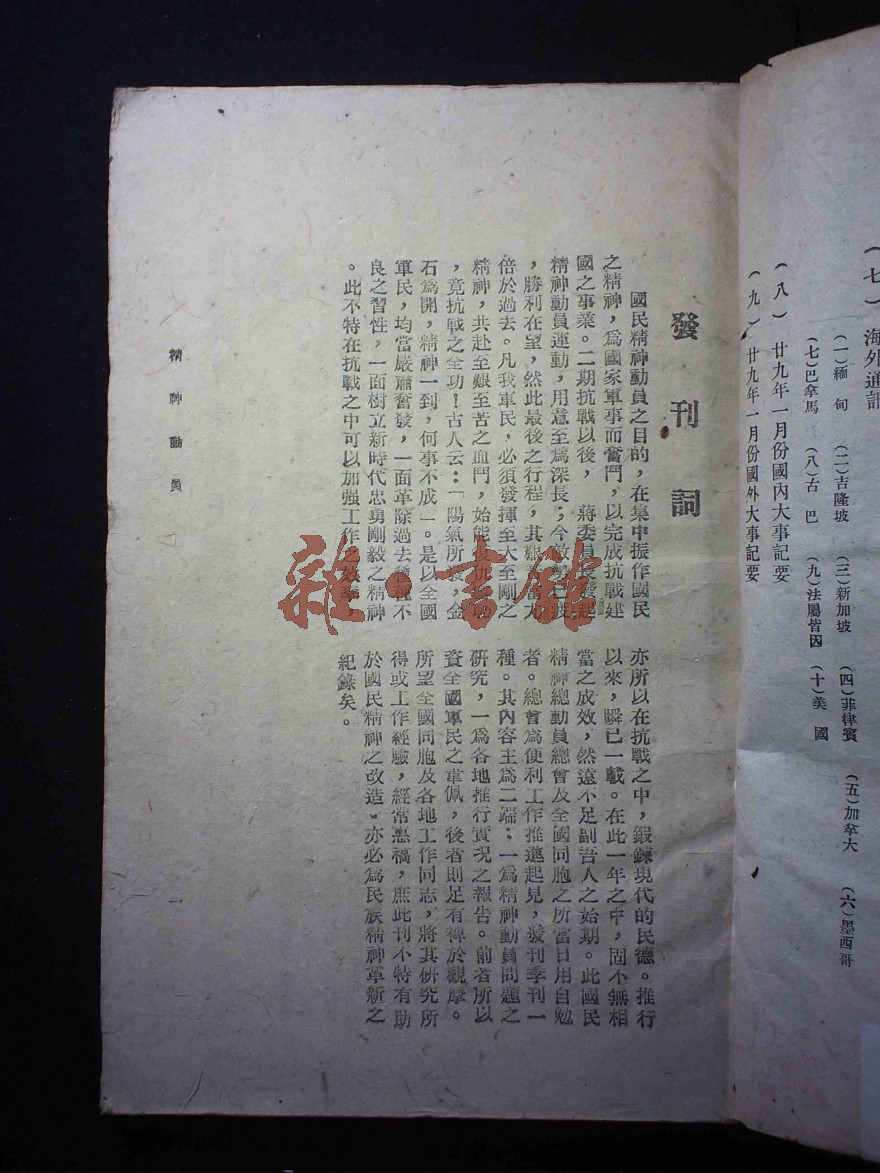 （七）海外通訊
（一）緬甸　（二）吉隆坡　（三）新加坡　（四）菲律賓　（五）加拿大　（六）墨西哥
（七）巴拿馬　（八）古巴　（九）法屬皆因　（十）美國
（八）廿九年一月份國內大事記要
（九）廿九年一月份國外大事記要
發刊詞
國民精神動員之目的，在集中振作國民
之精神，爲國家軍事而奮鬥，以完成抗戰建
國之事業。二期抗戰以後，　蔣委員長發起
精神動員運動，用意至爲深長；今敵
，勝利在望，然此最後之行程，其艱
倍於過去。凡我軍民，必須發揮至大至剛之
精神，共赴至艱至苦之血鬥，始能
，竟抗戰之全功！古人云：「陽氣所發，金
石爲開，精神一到，何事不成」。是以全國
軍民，均當嚴肅奮發，一面革除過去種種不
良之習性，一面樹立新時代忠勇剛毅之精神
。此不特在抗戰之中可以加强工作之
亦所以在抗戰之中，鍛鍊現代的民德。推行
以來，瞬已一載。在此一年之中，固不無相
當之成效，然遠不足副吾人之始期。此國民
精神總動員總會及全國同胞之所當日用自勉
者。總會爲便利工作推進起見，發刊季刊一
種。其內容主爲二端；一爲精神動員問題之
研究，一爲各地推行實況之報告。前者所以
資全國軍民之韋佩，後者則足有裨於觀摩。
所望全國同胞及各地工作同志，將其研究所
得或工作經驗，經常惠稿，庶此刊不特有助
於國民精神之改造。亦必爲民族精神革新之
紀錄矣。
精神動員
一
雜·書館